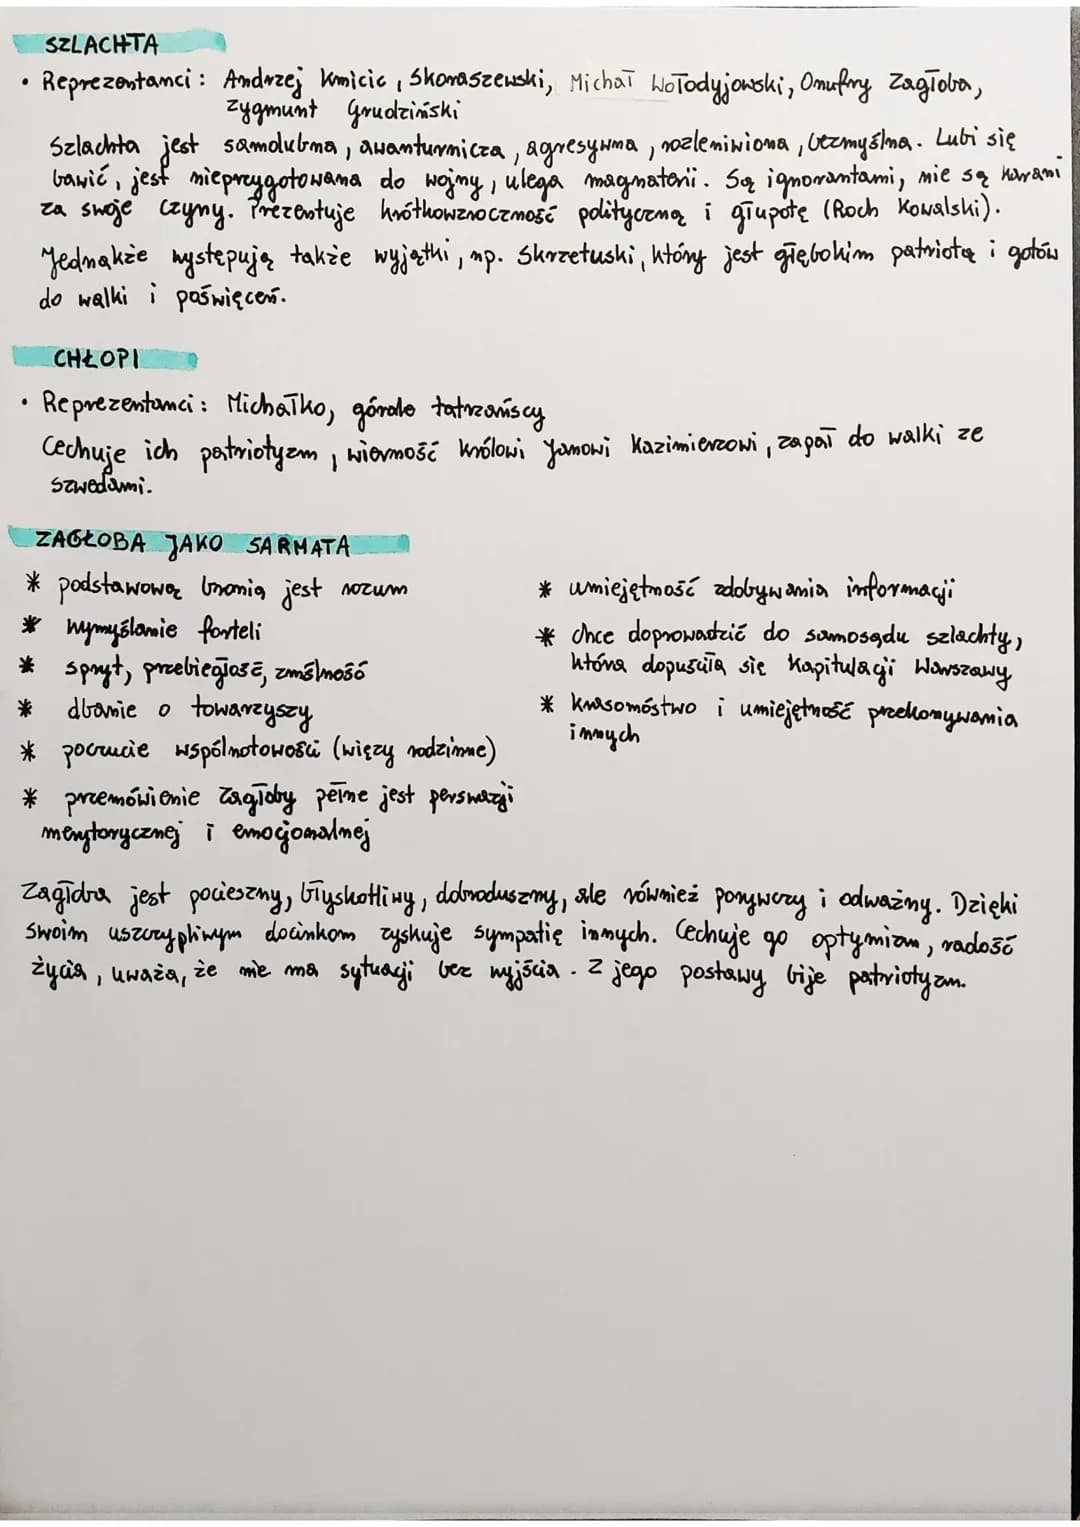 SZLACHTA
• Reprezentanci: Andrzej Kmicic, Skoraszewski, Michał Wołodyjowski, Onufry Zagłoba,
Zygmunt Grudziński
Szlachta jest samolubna, awanturnicza, agresywna, rozleniwiona, bezmyślna. Lubi się
bawić, jest nieprzygotowana do wojny, ulega magnaterii. Są ignorantami, nie są karani
za swoje czyny. Prezentuje krótkowzroczność polityczną i głupotę (Roch Kowalski).
Jednakże występują także wyjątki, np. Skrzetuski, który jest głębokim patriotą i gotów
do walki i poświęceń.
CHŁOPI
• Reprezentanci: Michałko, górale tatrzańscy
Cechuje ich patriotyzm, wierność królowi Janowi Kazimierzowi, zapał do walki ze
szwedami.
ZAGŁOBA JAKO SARMATA
* podstawową bronią jest rozum
* wymyślanie forteli
* spryt, przebiegłość, zmślność
* dbanie o towarzyszy
* poczucie wspólnotowości (więzy rodzinne)
* przemówienie Zagłoby pełne jest perswazji
merytorycznej i emocjonalnej
* umiejętność zdobywania informacji
* chce doprowadzić do samosądu szlachty,
która dopuściła się kapitulacji Warszawy
* krasomóstwo i umiejętność przekonywania
innych
Zagłoba jest pocieszny, błyskotliwy, dobroduszny, ale również porywczy i odważny. Dzięki
swoim uszczypliwym docinkom zyskuje sympatię innych. Cechuje go optymizm, radość
życia, uważa, że nie ma sytuacji bez wyjścia. Z jego postawy bije patriotyzm.